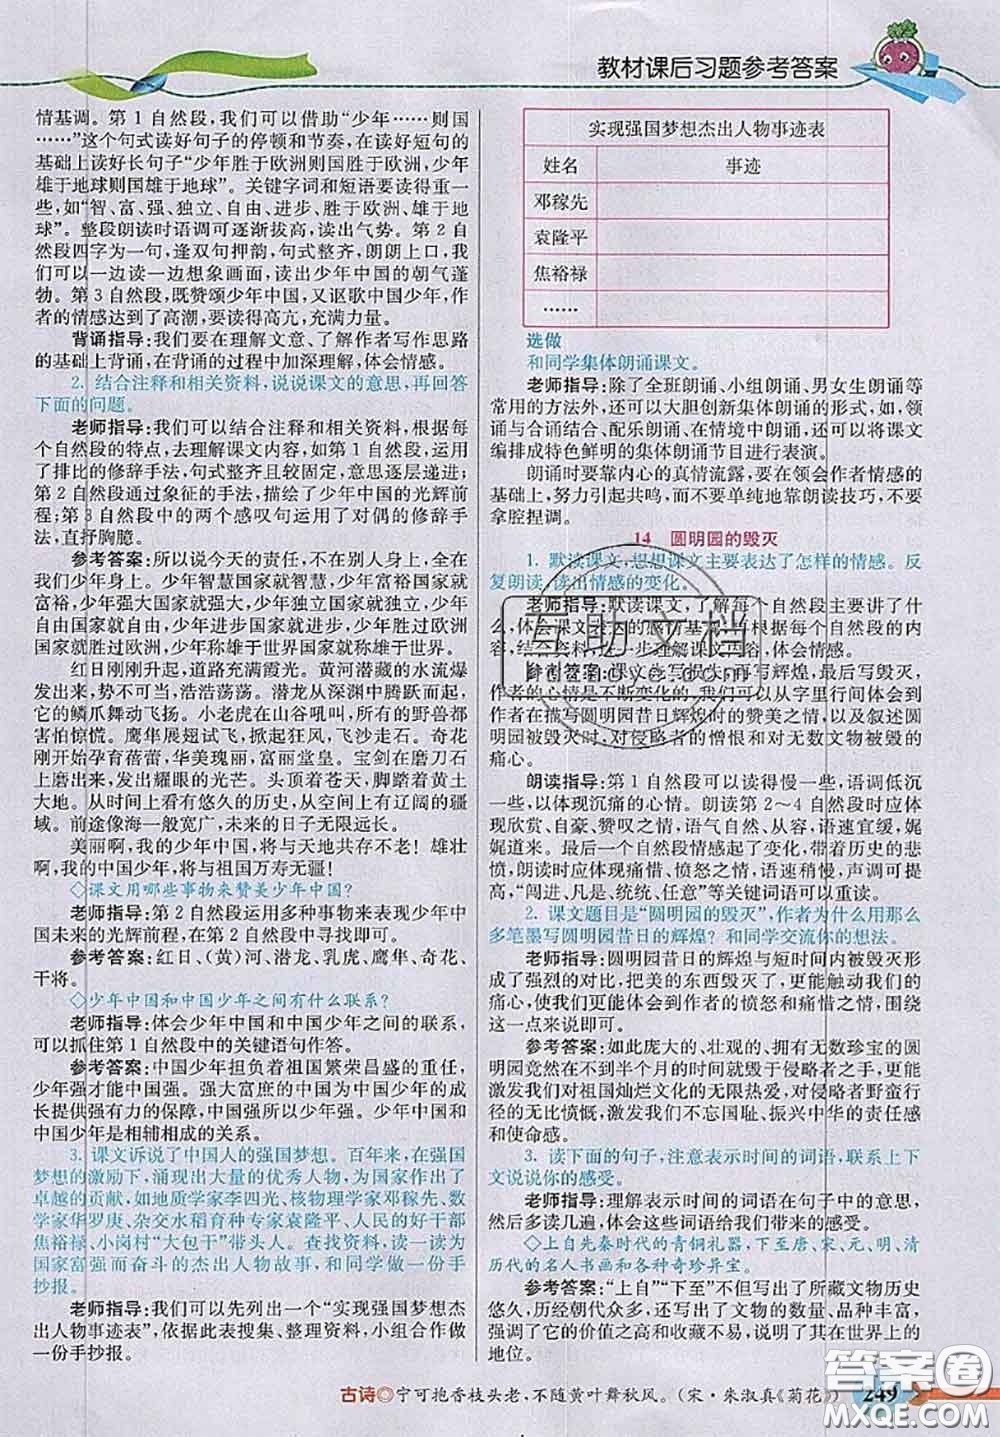 教材课后习题参考答案
情基调。第1自然段，我们可以借助“少年……则国
……”这个句式读好句子的停顿和节奏，在读好短句的
基础上读好长句子“少年胜于欧洲则国胜于欧洲，少年
雄于地球则国雄于地球”。关键字词和短语要读得重一
些，如“智、富、强、独立、自由、进步、胜于欧洲、雄于地
球”。整段朗读时语调可逐渐拔高，读出气势。第2自
然段四字为一句，逢双句押韵，句式整齐，朗朗上口，我
们可以一边读一边想象画面，读出少年中国的朝气蓬
勃。第3自然段，既赞颂少年中国，又讴歌中国少年，作
者的情感达到了高潮，要读得高亢，充满力量。
背诵指导：我们要在理解文意、了解作者写作思路
的基础上背诵，在背诵的过程中加深理解，体会情感。
2. 结合注释和相关资料，说说课文的意思，再回答
下面的问题。
老师指导：我们可以结合注释和相关资料，根据每
个自然段的特点，去理解课文内容，如第1自然段，运用
了排比的修辞手法，句式整齐且较固定，意思逐层递进；
第2自然段通过象征的手法，描绘了少年中国的光辉前
程；第3自然段中的两个感叹句运用了对偶的修辞手
法，直抒胸臆。
参考答案：所以说今天的责任，不在别人身上，全在
我们少年身上。少年智慧国家就智慧，少年富裕国家就
富裕，少年强大国家就强大，少年独立国家就独立，少年
自由国家就自由，少年进步国家就进步，少年胜过欧洲
国家就胜过欧洲，少年称雄于世界国家就称雄于世界。
红日刚刚升起，道路充满霞光。黄河潜藏的水流爆
发出来，势不可当，浩浩荡荡。潜龙从深渊中腾跃而起，
它的鳞爪舞动飞扬。小老虎在山谷吼叫，所有的野兽都
害怕惊慌。鹰隼展翅试飞，掀起狂风，飞沙走石。奇花
刚开始孕育蓓蕾，华美瑰丽，富丽堂皇。宝剑在磨刀石
上磨出来，发出耀眼的光芒。头顶着苍天，脚踏着黄土
大地。纵看有悠久的历史，横看有辽阔的疆
域。前途像海一般宽广，未来的日子无限远长。
美丽啊，我的少年中国，将与天地共存不老！雄壮
啊，我的中国少年，将与祖国万寿无疆！
◇课文用哪些事物来赞美少年中国？
老师指导：第2自然段运用多种事物来表现少年中
国未来的光辉前程，在第2自然段中寻找即可。
参考答案：红日、（黄）河、潜龙、乳虎、鹰隼、奇花、
干将。
◇少年中国和中国少年之间有什么联系？
老师指导：体会少年中国和中国少年之间的联系，
可以抓住第1自然段中的关键语句作答。
参考答案：中国少年担负着祖国繁荣昌盛的重任，少
年强才能中国强。强大富庶的中国可以为中国少年成长
提供强有力的保障，中国强所以少年强。少年中国和中
国少年是相辅相成的关系。
3. 课文诉说了中国人的强国梦想。百年来，在强国
梦想的激励下，涌现出大量的优秀人物，为国家作出了
卓越的贡献，如地质学家李四光、核物理学家邓稼先、数
学家华罗庚、杂交水稻育种专家袁隆平、人民的好干部
焦裕禄、小岗村“大包干”带头人。查找资料，读一读为
国家富强而奋斗的杰出人物故事，和同学做一份手
抄报。
老师指导：我们可以先列出一个“实现强国梦想杰
出人物事迹表”，依据此表搜集、整理资料，小组合作做
一份手抄报。
实现强国梦想杰出人物事迹表
姓名 事迹
邓稼先
袁隆平
焦裕禄
……
选做
和同学集体朗诵课文。
老师指导：除了全班朗诵、小组朗诵、男女生朗诵等
常用的方法外，还可以大胆创新集体朗诵的形式，如，领
诵与合诵结合、配乐朗诵、在情境中朗诵，还可以将课文
编排成特色鲜明的集体朗诵节目进行表演。
朗诵时要靠内心的真情流露，要在领会作者情感的
基础上，努力引起共鸣，而不要单纯地靠朗读技巧，不要
拿腔捏调。
14 圆明园的毁灭
1. 默读课文，想想课文主要表达了怎样的情感。反
复朗读，读出情感的变化。
老师指导：默读课文，了解每个自然段主要讲了什
么，体会课文的情感基调，根据每个自然段的内容的
结合资料进一步理解课文内容，体会情感。
参考答案：课文先写损失，再写辉煌，最后写毁灭，
作者的心情是不断变化的，我们可以从字里行间体会到
作者在描写圆明园昔日辉煌时的赞美之情，以及叙述圆
明园被毁灭时，对侵略者的憎恨和对无数文物被毁的
痛心。
朗读指导：第1自然段可以读得慢一些，语调低沉
一些，以体现沉痛的心情。朗读第2～4自然段时应体
现欣赏、自豪、赞叹之情，语气自然、从容，语速宜缓，娓
娓道来。最后一个自然段情感起了变化，带着历史的悲
愤，朗读时应体现痛惜、愤怒之情，语速稍快，声调可提
高，“闯进、凡是、统统、任意”等关键词语可以重读。
2. 课文题目是“圆明园的毁灭”，作者为什么用那么
多笔墨写圆明园昔日的辉煌？和同学交流你的想法。
老师指导：圆明园昔日的辉煌与短时间内被毁灭形
成了强烈的对比，把美的东西毁灭了，最能激起我们的
痛心，使我们体会到作者的愤怒和痛惜之情，围绕
这一点来说即可。
参考答案：如此庞大的、壮观的、拥有无数珍宝的圆
明园竟然在不到半个月的时间毁于侵略者之手，更能
激发我们对祖国灿烂文化的无限热爱，对侵略者野蛮行
径的无比愤慨，以此激发我们不忘国耻、振兴中华的责任感
和使命感。
3. 读下面的句子，注意表示时间的词语，联系上下
文说说你的感受。
老师指导：理解表示时间的词语在句子中的意思，
然后多读几遍，体会这些词语给我们带来的感受。
◇上自先秦时代的青铜礼器，下至唐、宋、元、明、清
历代的名人书画和各种奇珍异宝。
参考答案：“上自”“下至”不但写出了所藏文物历史
悠久，历经朝代众多，还写出了文物的数量、品种丰富，
强调了它的价值之高和收藏不易，说明了其在世界上的
地位。
古诗◎宁可抱香枝头老，不随黄叶舞秋风。（宋·朱淑真《菊花》）
249
互助文档
答案圈
MXQE.COM